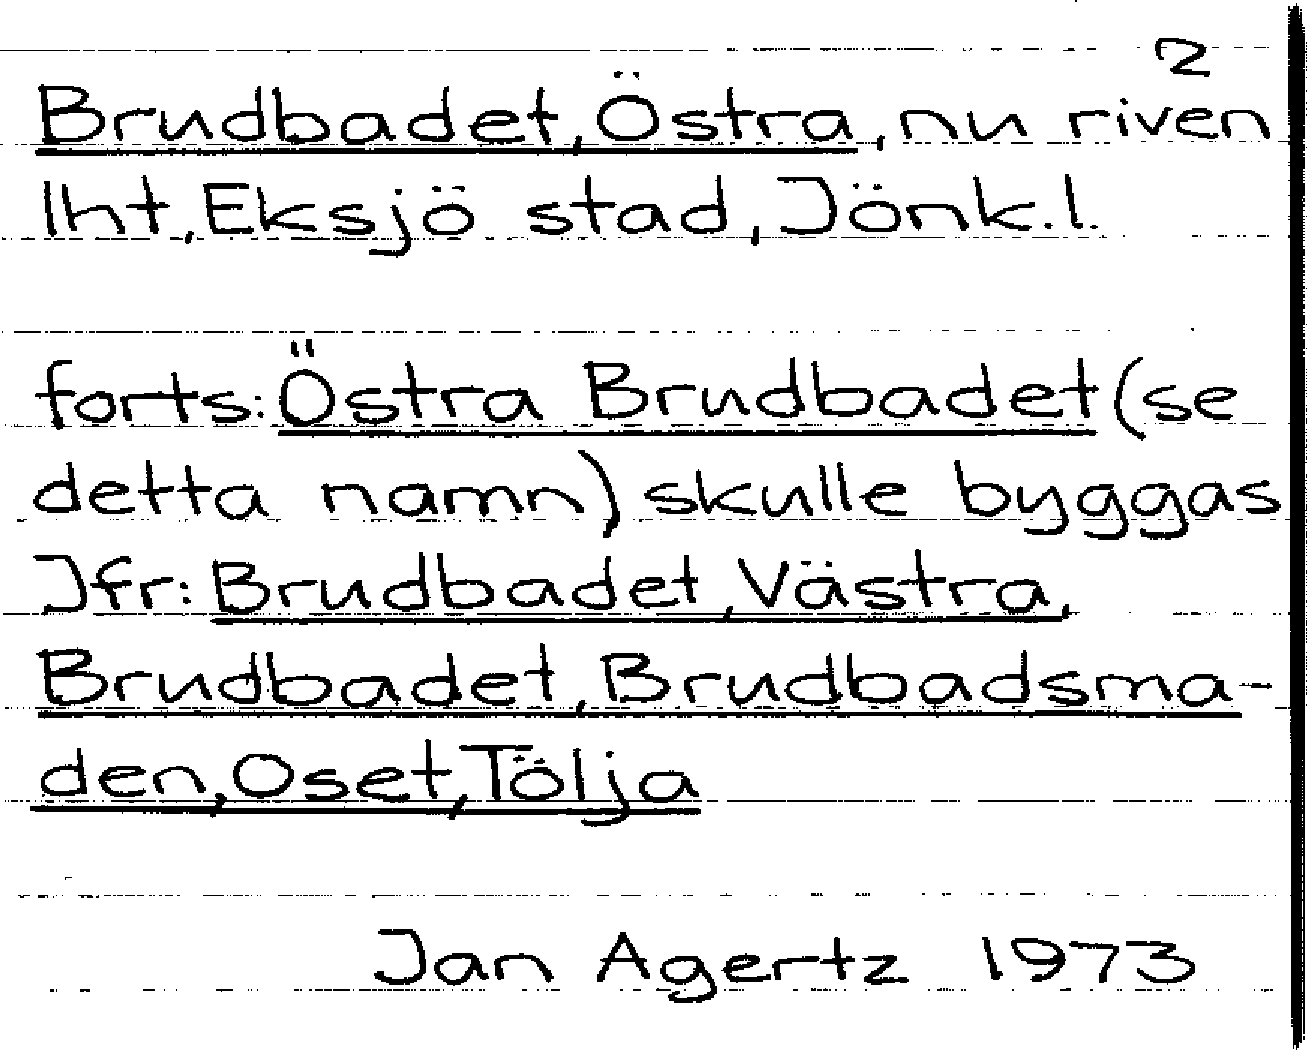 2
Brudbadet, Östra, nu riven
lht, Eksjö stad, Jönk.l.
forts: Östra Brudbadet (se
detta namn) skulle byggas
Jfr: Brudbadet, Västra,
Brudbadet, Brudbadsma-
den, Oset, Tölja
Jan Agertz 1973